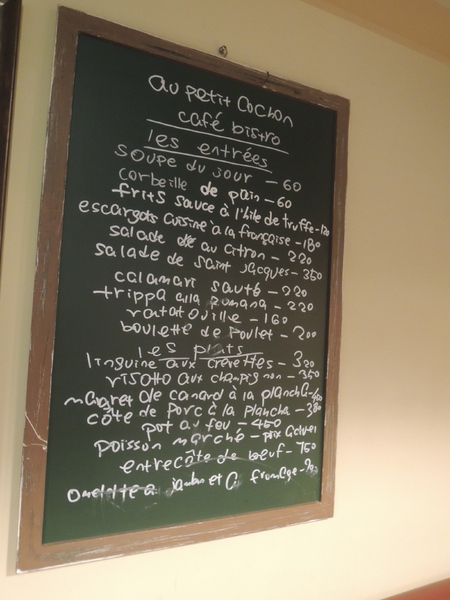 au petit Cochon
café bistro
les entrées
soupe du jour – 60
corbeille de pain – 60
frits sauce à l'hile de truffe – 120
escargots cuisine a la française – 180
salade de au citron – 220
salade de saint Jacques – 350
calamari sauté – 220
trippa alla Romana – 220
ratatouille – 160
boulette de poulet – 200
les plats
linguine aux crevettes – 320
risotto aux champignon – 350
magret de canard à la plancha –
côte de porc à la plancha – 380
pot au feu – 450
poisson marché – prix
entrecôte de bœuf – 750
jambon et fromage –